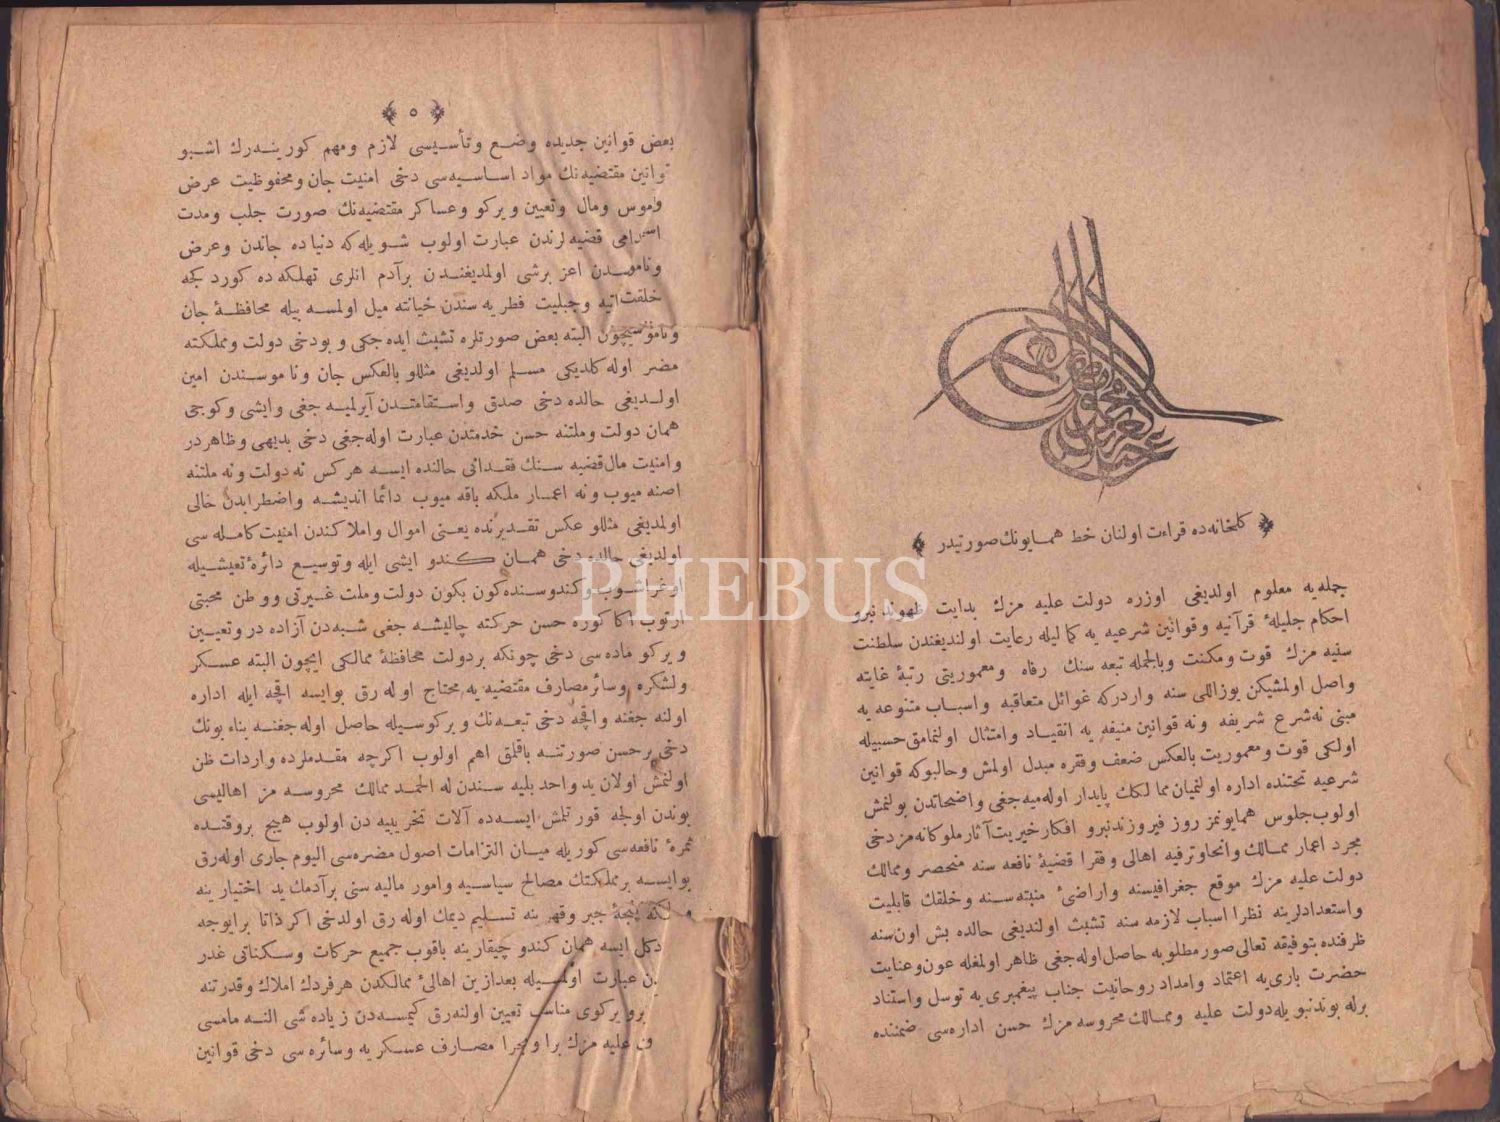 ﴿ كلخانه‌ده قراءت اولنان خط همايونك صورتيدر ﴾
جمله‌يه معلوم اولديغى اوزره دولت عليه مزك بدايت ظهوندنبرو
احكام جليلۀ قرآنيه وقوانين شرعيه يه كماليله رعايت اولنديغندن سلطنت
سنيه مزك قوت ومكنت وبالجمله تبعه سنك رفاه ومعموريتى رتبۀ غايته
واصل اولمشيكن يوزاللى سنه واردركه غوائل متعاقبه واسباب متنوعه يه
مبنى نه‌شرع شريفه ونه قوانين منيفه يه انقياد وامتثال اولنمامق حسبيله
اولكى قوت ومعموريت بالعكس ضعف وفقره مبدل اولمش وحالبوكه قوانين
شرعيه تحتنده اداره اولنميان ممالكك پايدار اوله‌ميه‌جغى واضحاتدن بولنمش
اولوب جلوس همايونمز روز فيروزندنبرو افكار خيريت آثار ملوكانه‌مز دخى
مجرد اعمار ممالك وانحا وترفيه اهالى وفقرا قضيۀ نافعه سنه منحصر وممالك
دولت عليه مزك موقع جغرافيسنه واراضئ منبته‌سنه وخلقك قابليت
واستعدادلرينه نظرا اسباب لازمه سنه تشبث اولنديغى حالده بش اون‌سنه
ظرفنده بتوفيقه تعالى صور مطلوبه حاصل اوله‌جغى ظاهر اولمغله عون وعنايت
حضرت بارى‌يه اعتماد وامداد روحانيت جناب پيغمبرى يه توسل واستناد
برله بوندنبويله دولت عليه وممالك محروسه مزك حسن اداره‌سى ضمننده
﴿ ٥ ﴾
بعض قوانين جديده وضع وتأسيسى لازم ومهم كورينه‌رك اشبو
قوانين مقتضيه‌نك مواد اساسيه‌سى دخى امنيت جان ومحفوظيت عرض
وناموس ومال وتعيين ويركو وعساكر مقتضيه‌نك صورت جلب ومدت
استخدامى قضيه‌لرندن عبارت اولوب شويله‌كه دنياده جاندن وعرض
وناموسدن اعز برشى اولمديغندن برآدم انلرى تهلكه ده كوردكجه
خلقت ذاتيه وجبليت فطريه سندن خيانته ميل اولمسه بيله محافظۀ جان
وناموسيچون البته بعض صورتلره تشبث ايده جكى وبودخى دولت ومملكته
مضر اوله كلديكى مسلم اولديغى مثللو بالعكس جان وناموسندن امين
اولديغى حالده دخى صدق واستقامتدن آيرلميه جغى وايشى وكوجى
همان دولت وملتنه حسن خدمتدن عبارت اوله‌جغى دخى بديهى وظاهردر
وامنيت مال قضيه سنك فقدانى حالنده ايسه هركس نه دولت ونه ملتنه
اصنه ميوب ونه اعمار ملكه باقه ميوب دائما انديشه واضطرابدن خالى
اولمديغى مثللو عكس تقديرنده يعنى اموال واملاكندن امنيت كامله سى
اولديغى حالده دخى همان كندو ايشى ايله وتوسيع دائرۀ تعيشيله
اوغراشوب وكندوسنده كون بكون دولت وملت غيرتى ووطن محبتى
آرتوب اكا كوره حسن حركته چاليشه جغى شبه‌دن آزاده در وتعيين
ويركو ماده سى دخى چونكه بر دولت محافظۀ ممالكى ايچون البته عسكر
ولشكره وسائر مصارف مقتضيه يه محتاج اوله رق بوايسه اقچه ايله اداره
اولنه جغنه واقچه دخى تبعه‌نك ويركوسيله حاصل اوله جغنه بناء بونك
دخى برحسن صورتنه باقلمق اهم اولوب اكرچه مقدملرده واردات ظن
اولنمش اولان يد واحد بليه سندن له الحمد ممالك محروسه مز اهاليسى
بوندن اولجه قورتلمش ايسه‌ده آلات تخريبيه دن اولوب هيچ بروقتنده
ثمرۀ نافعه‌سى كوريله ميان التزامات اصول مضره‌سى اليوم جارى اوله‌رق
بوايسه بر مملكتك مصالح سياسيه وامور ماليه سنى برآدمك يد اختيارينه
وبلكه پنجۀ جبر وقهرينه تسليم ديمك اوله رق اولدخى اكر ذاتا برايوجه
دكل ايسه همان كندو چيقارينه باقوب جميع حركات وسكناتى غدر
عبارت اولمسيله بعدازين اهالئ ممالكدن هرفردك املاك وقدرتنه
برويركوى مناسب تعيين اولنه‌رق كيمسه‌دن زياده شى النه مامسى
عليه مزك برا وبحرا مصارف عسكريه وسائره سى دخى قوانين